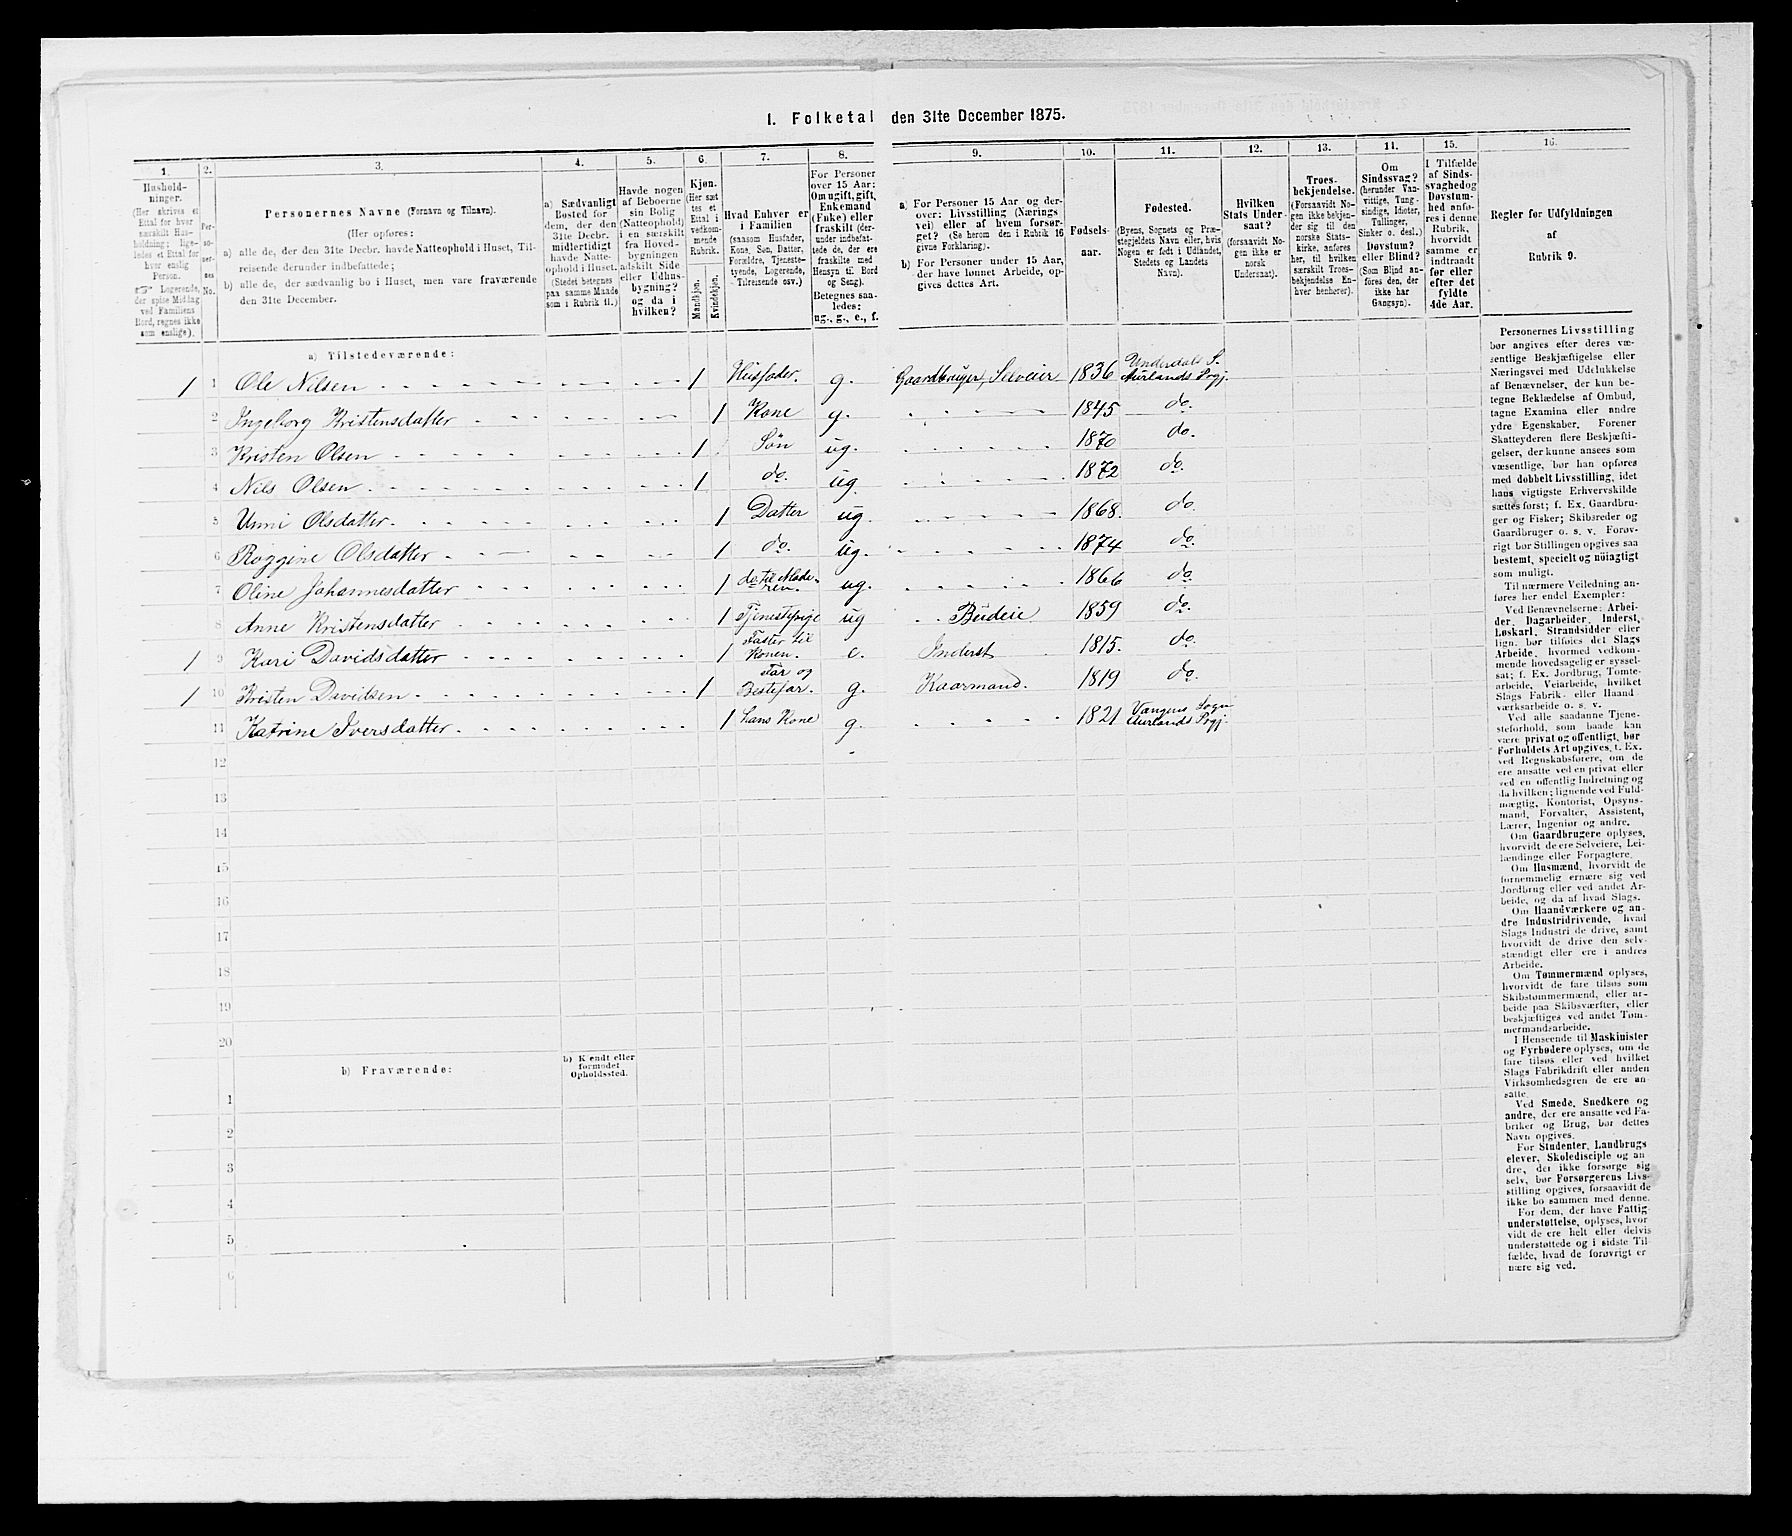 1. Folketal den 31te December 1875.
1. 2. 3. 4. 5. 6. 7. 8. 9. 10. 11. 12. 13. 14. 15. 16.
Hushold-
ninger.
(Her skrives et
Ettal for hver
særskilt Hus-
holdning; lige-
ledes et Ettal for
hver enslig
Person.
☞ Logerende,
der spise Middag
ved Familiens
Bord, regnes ikke
som enslige).
Per-
so-
ner-
nes
No.
Personernes Navne (Fornavn og Tilnavn).
(Her opføres:
a) alle de, der den 31te Decbr. havde Natteophold i Huset, Til-
reisende derunder indbefattede;
b) alle de, der sædvanlig bo i Huset, men vare fraværende
den 31te December.
a) Sædvanligt
Bosted for
dem, der den
31te Decbr.
midlertidigt
havde Natte-
ophold i Huset.
(Stedet betegnes
paa samme Maade
som i Rubrik 11.)
Havde nogen
af Beboerne
sin Bolig
(Natteophold)
i en særskilt
fra Hoved-
bygningen
adskilt Side
eller Udhus-
bygning?
og da i
hvilken?
Kjøn.
(Her sæt
tes et
Ettal i
vedkom-
mende
Rubrik.
Mandkjøn.
Kvindekjøn.
Hvad Enhver er
i Familien
(saasom Husfader,
Kone, Søn, Datter,
Forældre, Tjeneste-
tyende, Logerende,
Tilreisende osv.)
For Personer
over 15 Aar:
Om ugift, gift,
Enkemand
(Enke) eller
fraskilt (der-
under indbefat-
tede de, der ere
fraskilte med
Hensyn til Bord
og Seng).
Betegnes saa-
ledes:
ug., g., e., f.
a) For Personer 15 Aar og der-
over: Livsstilling (Nærings
vei) eller af hvem forsør-
get? (Se herom den i Rubrik 16
givne Forklaring).
b) For Personer under 15 Aar,
der have lønnet Arbeide, op-
gives dettes Art.
Fødsels-
aar.
Fødested.
(Byens, Sognets og Præ-
stegjeldets Navn eller, hvis
Nogen er født i Udlandet,
Stedets og Landets
Navn).
Hvilken
Stats Under-
saat?
(forsaavidt No-
gen ikke er
norsk
Undersaat).
Troes-
bekjendelse.
(Forsaavidt No-
gen ikke bekjen-
der sig til den
norske Stats-
kirke, anføres
her, til hvilken
særskilt Troes-
bekjendelse En-
hver henhører).
Om
Sindssvag?
(herunder Van-
vittige, Tung-
sindige, Idioter,
Tullinger,
Sinker o. desl.)
Døvstum?
eller Blind?
(Som Blind an-
føres den, der
ikke har
Gangsyn).
I Tilfælde
af Sinds-
svaghed og
Døvstum-
hed anfø-
res i denne
Rubrik,
hvorvidt
samme er
indtraadt
før eller
efter det
fyldte
4de Aar.
Regler for Udfyldningen
af
Rubrik 9.
a) Tilstedeværende:
1 1 Ole Nilsen 1 Husfader. g. Gaardbruger, Selveier 1836 Underdals S. Aurlands Prgj.
2 Ingeborg Kristensdatter 1 Kone g. 1845 do.
3 Kristen Olsen 1 Søn ug. 1870 do.
4 Nils Olsen 1 do. ug. 1872 do.
5 Unni Olsdatter. 1 Datter ug. 1868. do.
6 Roggine Olsdatter 1 do. ug. 1874 do.
7 Oline Johannesdatter 1 do til Mode-ren. ug. 1866 do.
8 Anne Kristensdatter 1 Tjenestepige ug Budeie 1859 do.
1 9 Kari Davidsdatter 1 Faster til Konen. e. Inderst 1815. do.
1 10 Kristen Davidsen 1 Far og Bestefar. g. Kaarmand. 1819 do.
11 Katrine Iversdatter 1 hans Kone g. 1821 Vangens Sogn Aurlands Prgj.
12
13
14
15
16
17
18
19
20
b) Fraværende:
b) Kjendt eller
formodet
Opholdssted.
1
2
3
4
5
6
Personernes Livsstilling
bør angives efter deres væ-
sentlige Beskjæftigelse eller
Næringsvei med Udelukkelse
af Benævnelser, der kun be-
tegne Beklædelse af Ombud,
tagne Examina eller andre
ydre Egenskaber. Forener
Skatteyderen flere Beskjæfti-
gelser, der kunne ansees som
væsentlige, bør han opføres
med dobbelt Livsstilling, idet
hans vigtigste Erhvervskilde
sættes først; f. Ex. Gaardbru-
ger og Fisker; Skibsreder og
Gaardbruger o. s. v. Forøv-
rigt bør Stillingen opgives saa
bestemt, specielt og nøiagtigt
som muligt.
Til nærmere Veiledning an-
føres her endel Exempler:
Ved Benævnelserne: Arbei-
der, Dagarbeider, Inderst,
Løskarl, Strandsidder eller
lign. bør tilføies det Slags
Arbeide, hvormed vedkom-
mende hovedsagelig er syssel-
sat; f. Ex. Jordbrug, Tomte-
arbeide, Veiarbeide, hvilket
Slags Fabrik- eller Haand
værksarbeide o. s. v.
Ved alle saadanne Tjene-
steforhold, som baade kan
være privat og offentligt, bør
Forholdets Art opgives, t. Ex.
ved Regnskabsførere, om de
ere ansatte ved en privat eller
ved en offentlig Indretning og
da hvilken; lignende ved Fuld-
mægtig, Kontorist, Opsyns-
mand, Forvalter, Assistent,
Lærer, Ingeniør og andre.
Om Gaardbrugere oplyses,
hvorvidt de ere Selveiere, Lei-
lændinge eller Forpagtere.
Om Husmænd, hvorvidt de
fornemmelig ernære sig ved
Jordbrug eller ved andet Ar-
beide, og da af hvad Slags.
Om Haandværkere og an-
dre Industridrivende, hvad
Slags Industri de drive, samt
hvorvidt de drive den selv-
stændigt eller ere i andres
Arbeide.
Om Tømmermænd oplyses,
hvorvidt de fare tilsøs som
Skibstømmermænd, eller ar-
beide paa Skibsværfter, eller
beskjæftiges ved andet Tøm-
mermandsarbeide.
I Henseende til Maskinister
og Fyrbødere oplyses, om de
fare tilsøs eller ved hvilket
Slags Fabrikdrift eller anden
Virksomhedsgren de ere an-
satte.
Ved Smede, Snedkere og
andre, der ere ansatte ved Fa-
briker og Brug, bør dettes
Navn opgives.
For Studenter, Landbrugs
elever, Skoledisciple og an
dre, der ikke forsørge sig
selv, bør Forsørgerens Livs-
stilling opgives, forsaavidt de
ikke bo sammen med denne.
For dem, der have Fattig
understøttelse, oplyses, hvor
vidt de ere helt eller delvis
understøttede og i sidste Til
fælde, hvad de forøvrigt er
nære sig ved.